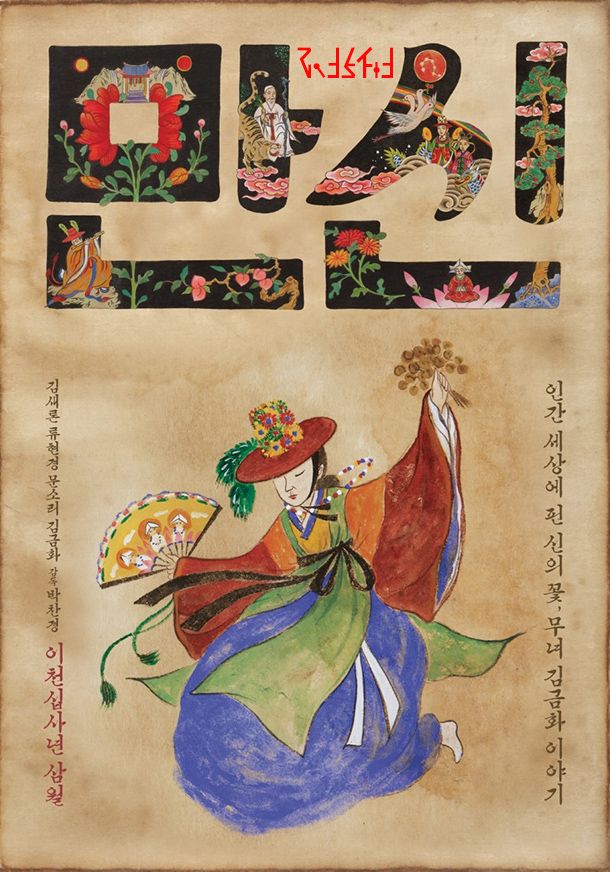 만신
인간 세상에 핀 신의 꽃, 무녀 김금화 이야기
김새론 류현경 문소리 김금화 감독 박찬경
이천십사년 삼월